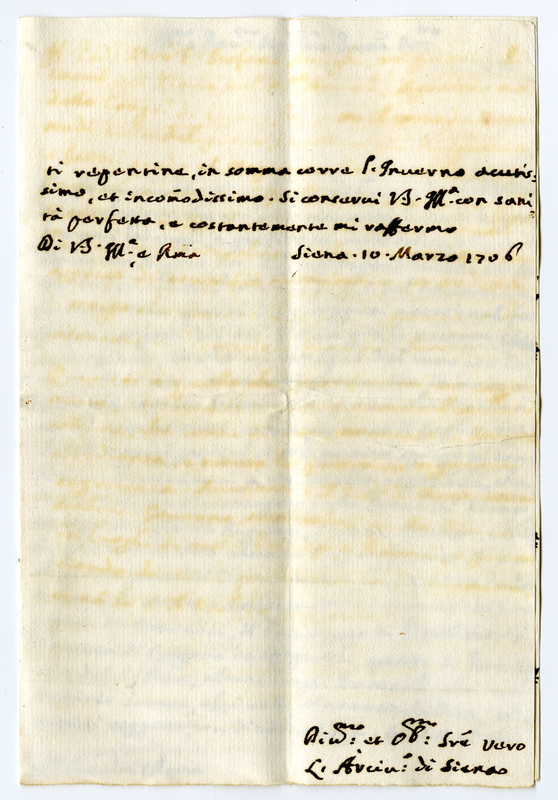 ti repentine, in somma corre l'Inverno acutis-
simo, et incom̃odissimo. Si conservi V.S. Ill.ª con sani-
tà perfetta, e costantemente mi raffermo
Di V.S. Ill.ª e Rma Siena. 10. Marzo 1706
Div.mo: et Ob.mo: Sre vero
L'Arciv.o: di Siena